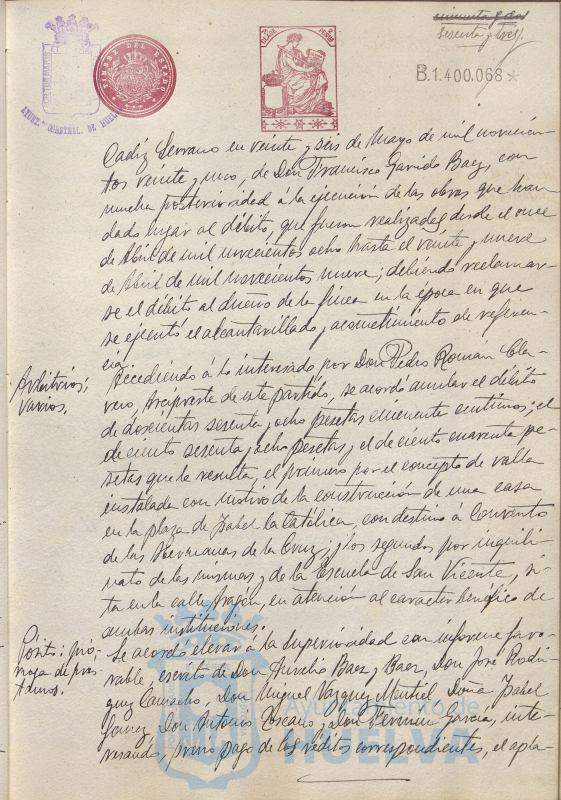 sesenta y tres
B.1.400.068*
TIMBRE DEL ESTADO
AYUNT.º CONSTNAL. DE HUELVA
Cadiz Serrano en veinte y seis de Mayo de mil novecien-
tos veinte y uno, de Don Francisco Garrido Baez, con
mucha posterioridad á la ejecución de las obras que han
dado lugar al débito, que fueron realizadas desde el once
de Abril de mil novecientos ocho hasta el veinte y nueve
de Abril de mil novecientos nueve; debiendo reclamar-
se el débito al dueño de la finca en la época en que
se ejecutó el alcantarillado y acometimiento de referen-
cia.
Arbitrios;
varios.
Accediendo á lo interesado por Don Pedro Román Cla-
vero, Arcipreste de este partido, se acordó anular el débito
de doscientas sesenta y ocho pesetas cincuenta centimos; el
de ciento sesenta y ocho pesetas, y el de ciento cuarenta pe-
setas que le resulta, el primero por el concepto de valla
instalada con motivo de la construcción de una casa
en la plaza de Isabel la Católica, con destino á Convento
de las Hermanas de la Cruz; y los segundos por inquili-
nato de las mismas y de la Escuela de San Vicente, si-
ta en la calle Aragón, en atención al caracter benéfico de
ambas instituciones.
Pósito: pró-
rroga de prés-
tamos.
Se acordó elevar á la Superioridad con informe favo-
rable, escrito de Don Aurelio Baez y Baez, Don José Rodri-
guez Camacho, Don Miguel Vazquez Mutiel, Doña Isabel
Gomez, Don Antonio Toscano y Don Fermin Garcia, inte-
resando, previo pago de los réditos correspondientes, el apla-
Ayuntamiento de
HUELVA